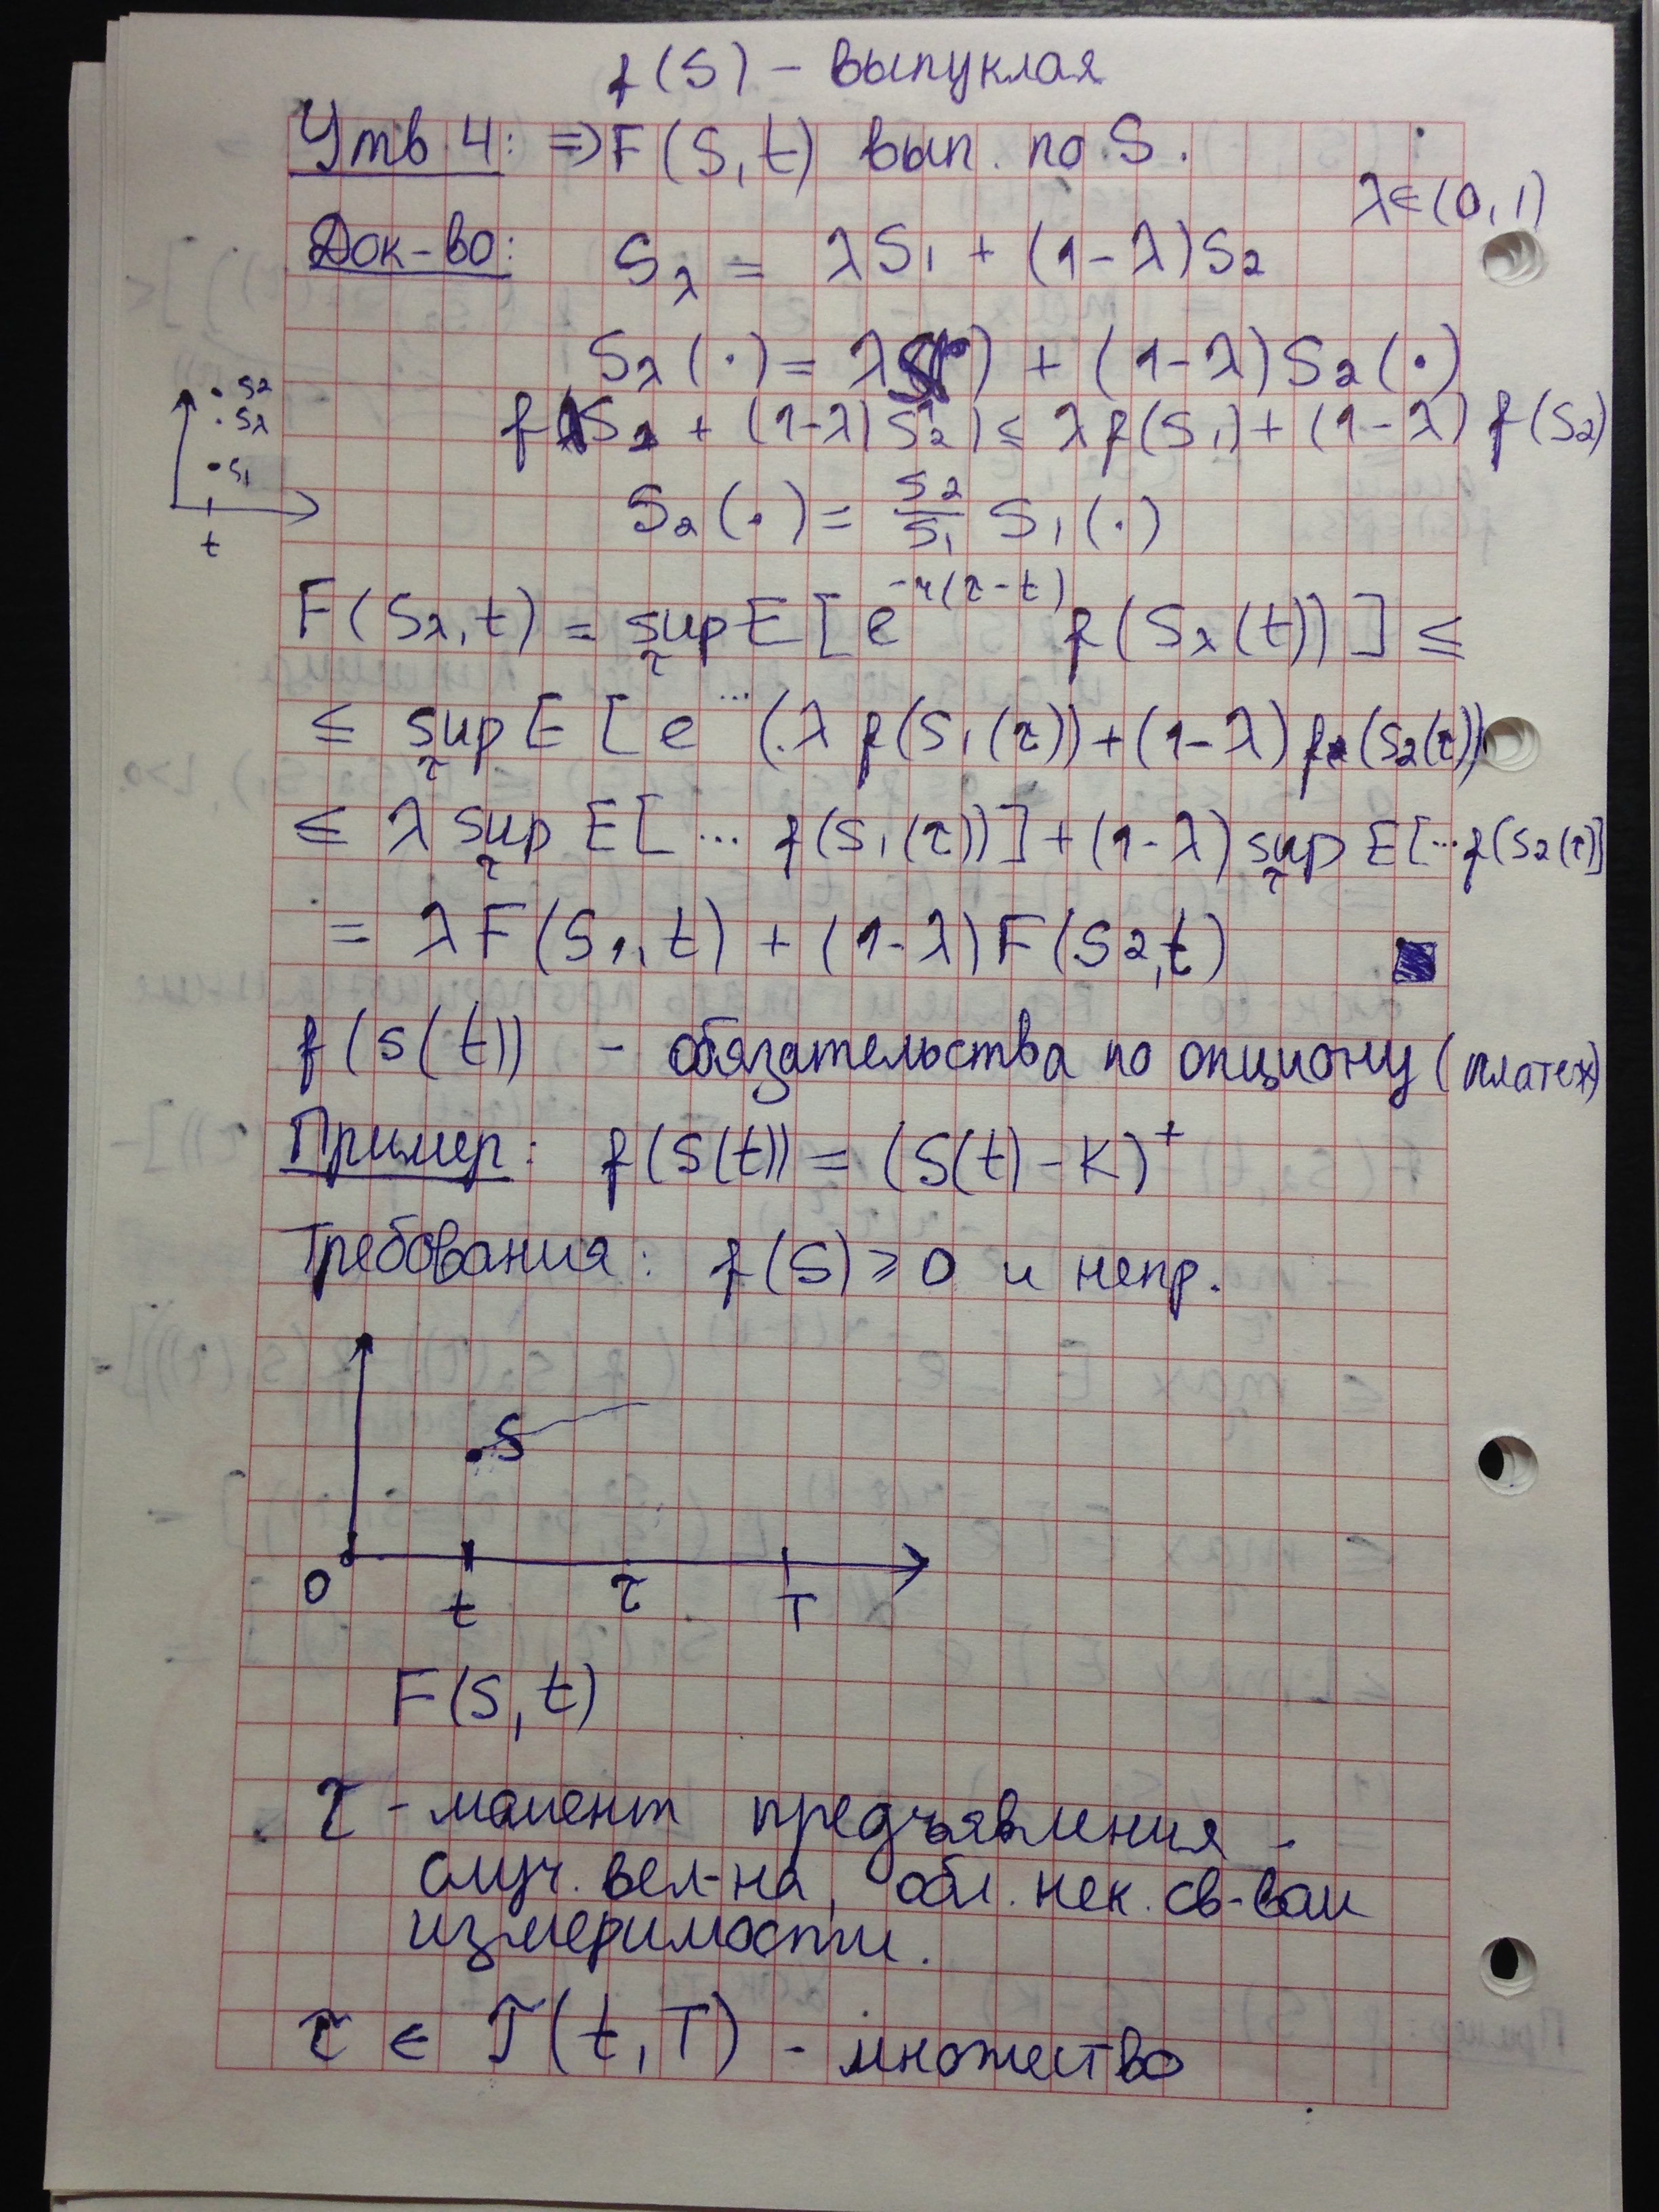 f(S) – выпуклая
Утв 4: ⇒ F(S,t) вып. по S.
λ∈(0,1)
Док-во: S_λ = λS₁ + (1-λ)S₂
S_λ(·) = λS₁(·) + (1-λ)S₂(·)
f(λS₁ + (1-λ)S₂) ≤ λf(S₁) + (1-λ)f(S₂)
S₂
S_λ
S₁
t
S₂(·) = S₂/S₁ S₁(·)
F(S_λ,t) = sup_τ E[e^{-r(τ-t)} f(S_λ(t))] ≤
≤ sup_τ E[e^{...}(λf(S₁(τ)) + (1-λ)f(S₂(τ))
≤ λ sup_τ E[... f(S₁(τ))] + (1-λ) sup_τ E[...f(S₂(τ)]
= λF(S₁,t) + (1-λ)F(S₂,t)
f(S(t)) – обязательства по опциону (платеж)
Пример: f(S(t)) = (S(t)-K)⁺
Требования: f(S) ≥ 0 и непр.
S
0 t τ T
F(S,t)
τ – момент предъявления –
случ. вел-на, обл. нек. св-вам
измеримости.
τ ∈ 𝒯(t,T) – множество